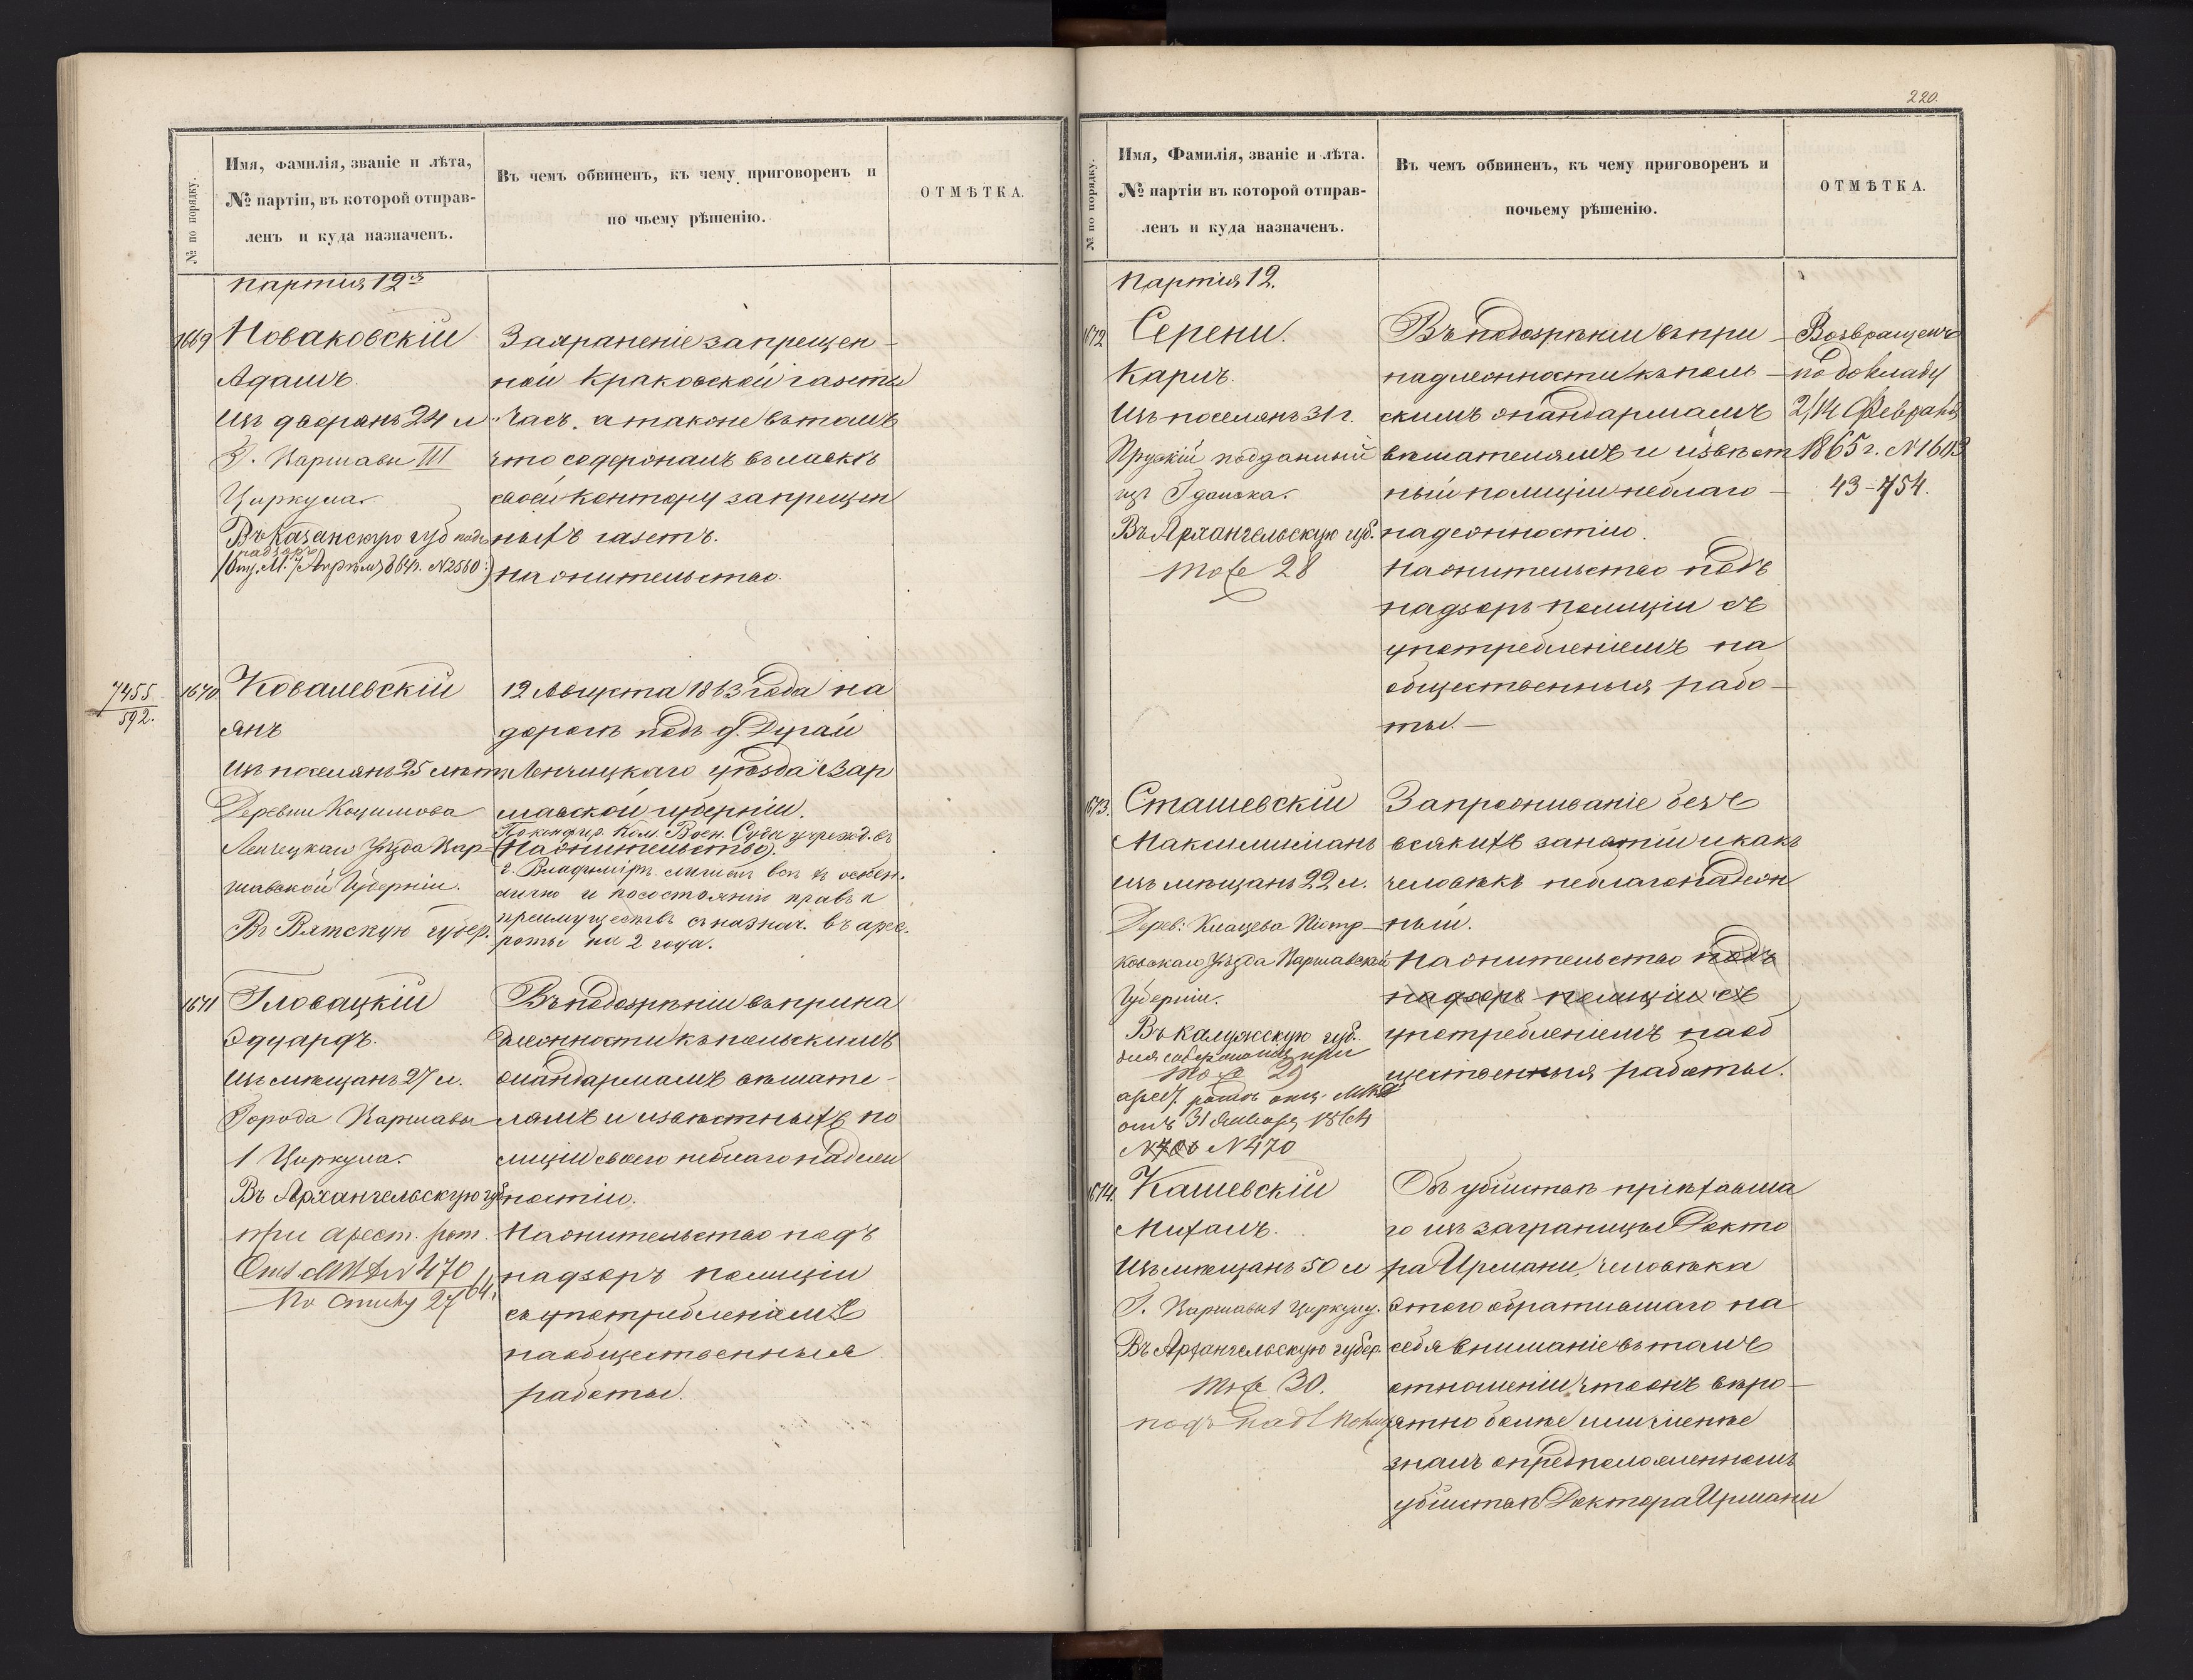 220.
№ по порядку.
Имя, фамилія, званіе и лѣта,
№ партіи, въ которой отправ-
ленъ и куда назначенъ.
Въ чемъ обвиненъ, къ чему приговоренъ и
по чьему рѣшенію.
ОТМѢТКА.
партія 12я
1669
Новаковскій
Адамъ.
Изъ дворянъ 24 л
Г. Варшавы III
Циркула.
Въ Казанскую губ подъ
надзоръ
Храненіе запрещен-
ной Краковской газеты
"Часъ. а также въ томъ
что содержалъ въ
своей контору запрещен
ныхъ газетъ.
На жительство.
7455
592.
1670
Ковалевскій
Янъ
Изъ поселянъ 25 лѣтъ
Деревни
Ленчецкаго Уѣзда Вар-
шавской Губерніи.
Въ Вятскую губер.
12 Августа 1863 года на
дорогѣ подъ д.
Ленчицкаго уѣзда Вар
шавской губерніи.
По конфир. Ком. Воен. Суда учрежд. въ
(На жительство).
г. Владимірѣ лишенъ всѣхъ особен.
лично и по состоянію правъ и
преимуществъ съ назнач. въ арес.
роты на 2 года.
1671
Гловацкій
Эдуардъ.
Изъ мѣщанъ 27 л.
Города Варшавы
1 Циркула.
Въ Архангельскую губ
при арест. рот.
№ 470
По списку 27
Въ подозрѣніи въ прина
длежности къ польскимъ
жандармамъ вѣшате-
лямъ и извѣстныхъ по
лиціи своего неблагонадеж
ностію.
На жительство подъ
надзоръ полиціи
съ употребленіемъ
на общественныя
работы.
№ по порядку.
Имя, Фамилія, званіе и лѣта.
№ партіи въ которой отправ-
ленъ и куда назначенъ.
Въ чемъ обвиненъ, къ чему приговоренъ и
почьему рѣшенію.
ОТМѢТКА.
Партія 12.
1672
Серени.
Карлъ.
Изъ поселянъ 31 г.
Прускій подданный
изъ Гданска.
Въ Архангельскую губ.
тоже 28
Въ подозрѣніи въ при-
надлежности къ поль-
скимъ жандармамъ
вѣшателямъ и извѣст
ный полиціи неблаго-
надежностію.
На жительство подъ
надзоръ полиціи съ
употребленіемъ на
общественныя рабо-
ты.—
Возвращенъ
по докладу
2/14 Февраля
1865 г. № 1603
43-754.
1673.
Сташевскій
Максимиліанъ
Изъ мѣщанъ 22 л.
Дерев: Піотр-
ковскаго Уѣзда Варшавской
Губерніи.
Въ Калужскую губ.
для содержанія при
тоже 29
арест. ротъ отн.
отъ 31 Января 1864
№ 700 № 470
безъ
всякихъ занятій и какъ
человѣкъ неблагонадеж
ный.
На жительство подъ
надзоръ полиціи съ
употребленіемъ на об
щественныя работы.
1674.
Кашевскій
Михалъ.
Изъ мѣщанъ 50 л
Г. Варшавы 1 циркулу.
Въ Архангельскую губер.
тоже 30.
подъ надз полиц
Объ убійствѣ пріѣхавша
го изъ заграницы Докто
ра Ирмани, человѣка
этого обратившаго на
себя вниманіе въ томъ
отношеніи что онъ вѣро-
ятно болѣе или менѣе
зналъ о предположенномъ
убійствѣ Доктора Ирмани